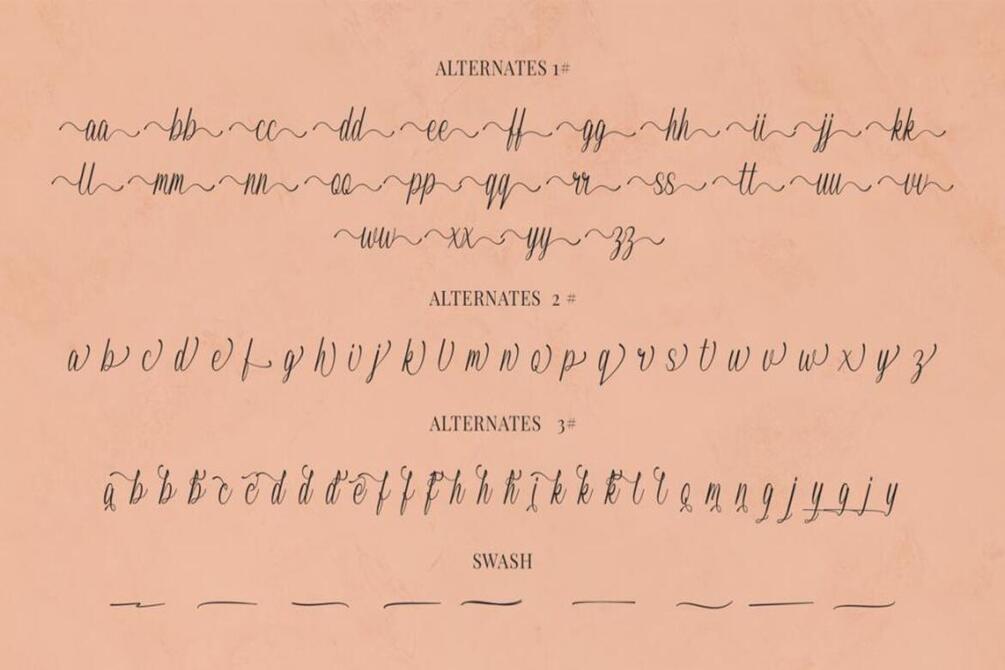 ALTERNATES 1#
aa bb cc dd ee ff gg hh ii jj kk
ll mm nn oo pp qq rr ss tt uu vv
ww xx yy zz
ALTERNATES 2 #
a b c d e f g h i j k l m n o p q r s t u v w x y z
ALTERNATES 3#
a b b b c c d d d e f f f h h h i k k k l l o m n g j y g j y
SWASH